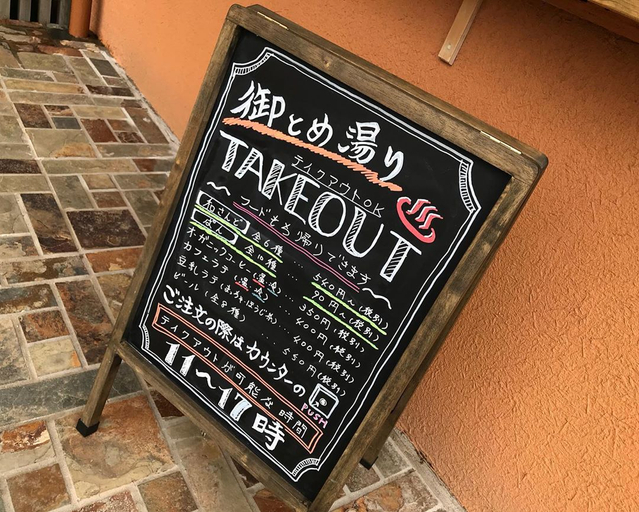 御とめ湯り
テイクアウトOK
TAKEOUT
フードもお持帰りできます
和さんど 全6種 … 540円〜(税別)
ぱん 全10種 … 90円〜(税別)
オーガニックコーヒー(温・冷) … 350円(税別)
カフェラテ(温・冷) … 400円(税別)
豆乳ラテ(まっ茶・ほうじ茶) … 400円(税別)
ビール(全8種) … 550円(税別)
ご注文の際はカウンターの
PUSH
テイクアウトが可能な時間
11〜17時